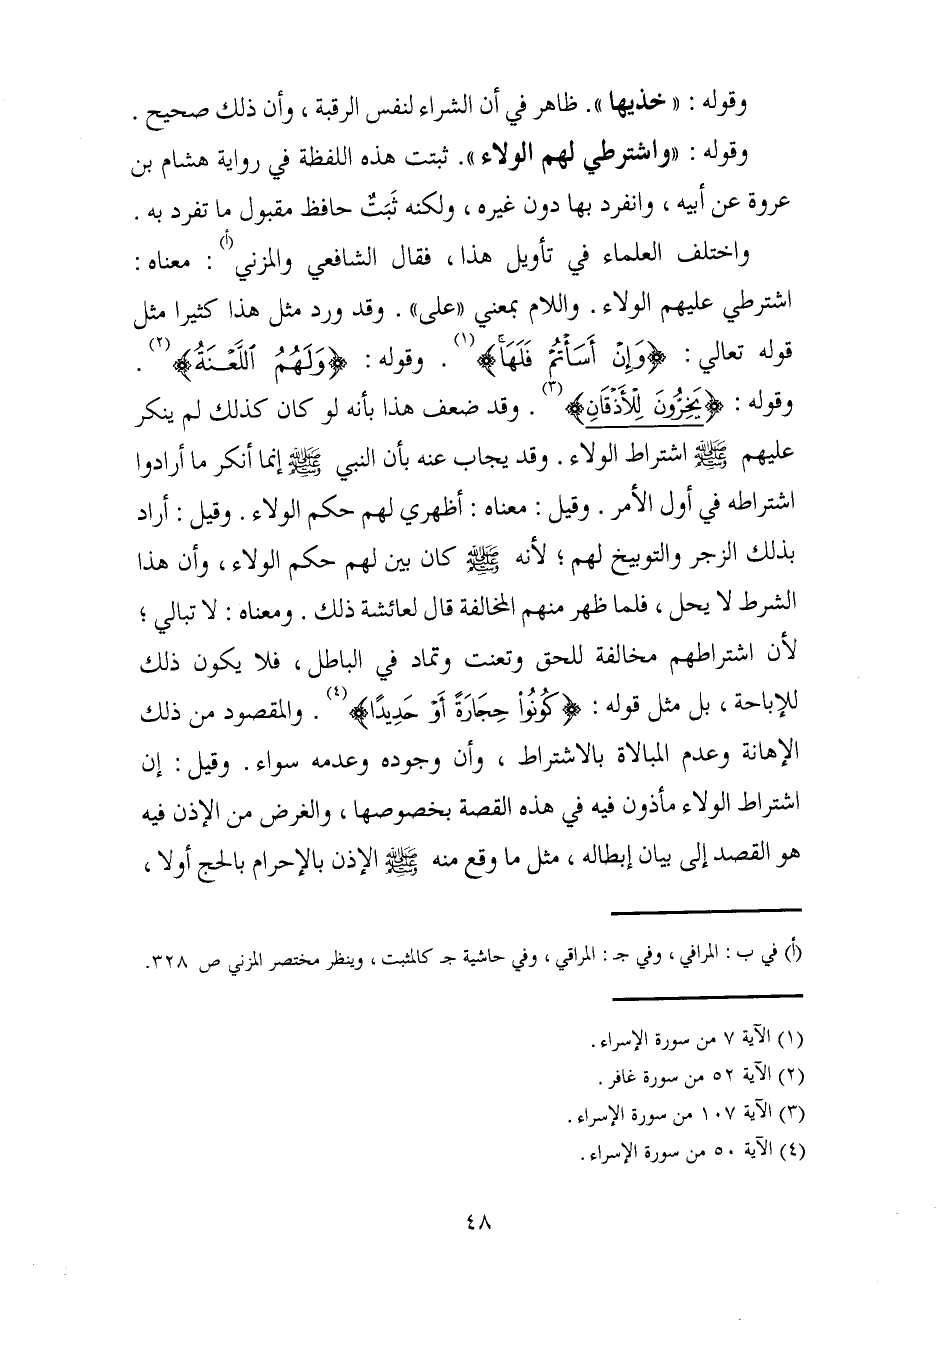 وقوله : « خذيها ». ظاهر في أن الشراء لنفس الرقبة ، وأن ذلك صحيح .
وقوله : «واشترطي لهم الولاء ». ثبتت هذه اللفظة في رواية هشام بن
عروة عن أبيه ، وانفرد بها دون غيره ، ولكنه ثَبَتٌ حافظ مقبول ما تفرد به .
واختلف العلماء في تأويل هذا ، فقال الشافعي والمزني(أ) : معناه :
اشترطي عليهم الولاء . واللام بمعني «على» . وقد ورد مثل هذا كثيرا مثل
قوله تعالي : ﴿وَإِنْ أَسَأْتُمْ فَلَهَا﴾(١) . وقوله : ﴿وَلَهُمُ ٱللَّعْنَةُ﴾(٢) .
وقوله : ﴿يَخِرُّونَ لِلْأَذْقَانِ﴾(٣) . وقد ضعف هذا بأنه لو كان كذلك لم ينكر
عليهم ﷺ اشتراط الولاء . وقد يجاب عنه بأن النبي ﷺ إنما أنكر ما أرادوا
اشتراطه في أول الأمر . وقيل : معناه : أظهري لهم حكم الولاء . وقيل : أراد
بذلك الزجر والتوبيخ لهم ؛ لأنه ﷺ كان بين لهم حكم الولاء ، وأن هذا
الشرط لا يحل ، فلما ظهر منهم المخالفة قال لعائشة ذلك . ومعناه : لا تبالي ؛
لأن اشتراطهم مخالفة للحق وتعنت وتماد في الباطل ، فلا يكون ذلك
للإباحة ، بل مثل قوله : ﴿كُونُواْ حِجَارَةً أَوْ حَدِيدًا﴾(٤) . والمقصود من ذلك
الإهانة وعدم المبالاة بالاشتراط ، وأن وجوده وعدمه سواء . وقيل : إن
اشتراط الولاء مأذون فيه في هذه القصة بخصوصها ، والغرض من الإذن فيه
هو القصد إلى بيان إبطاله ، مثل ما وقع منه ﷺ الإذن بالإحرام بالحج أولا ،
(أ) في ب : المرافي ، وفي جـ : المراقي ، وفي حاشية جـ كالمثبت ، وينظر مختصر المزني ص ٣٢٨.
(١) الآية ٧ من سورة الإسراء .
(٢) الآية ٥٢ من سورة غافر .
(٣) الآية ١٠٧ من سورة الإسراء .
(٤) الآية ٥٠ من سورة الإسراء .
٤٨